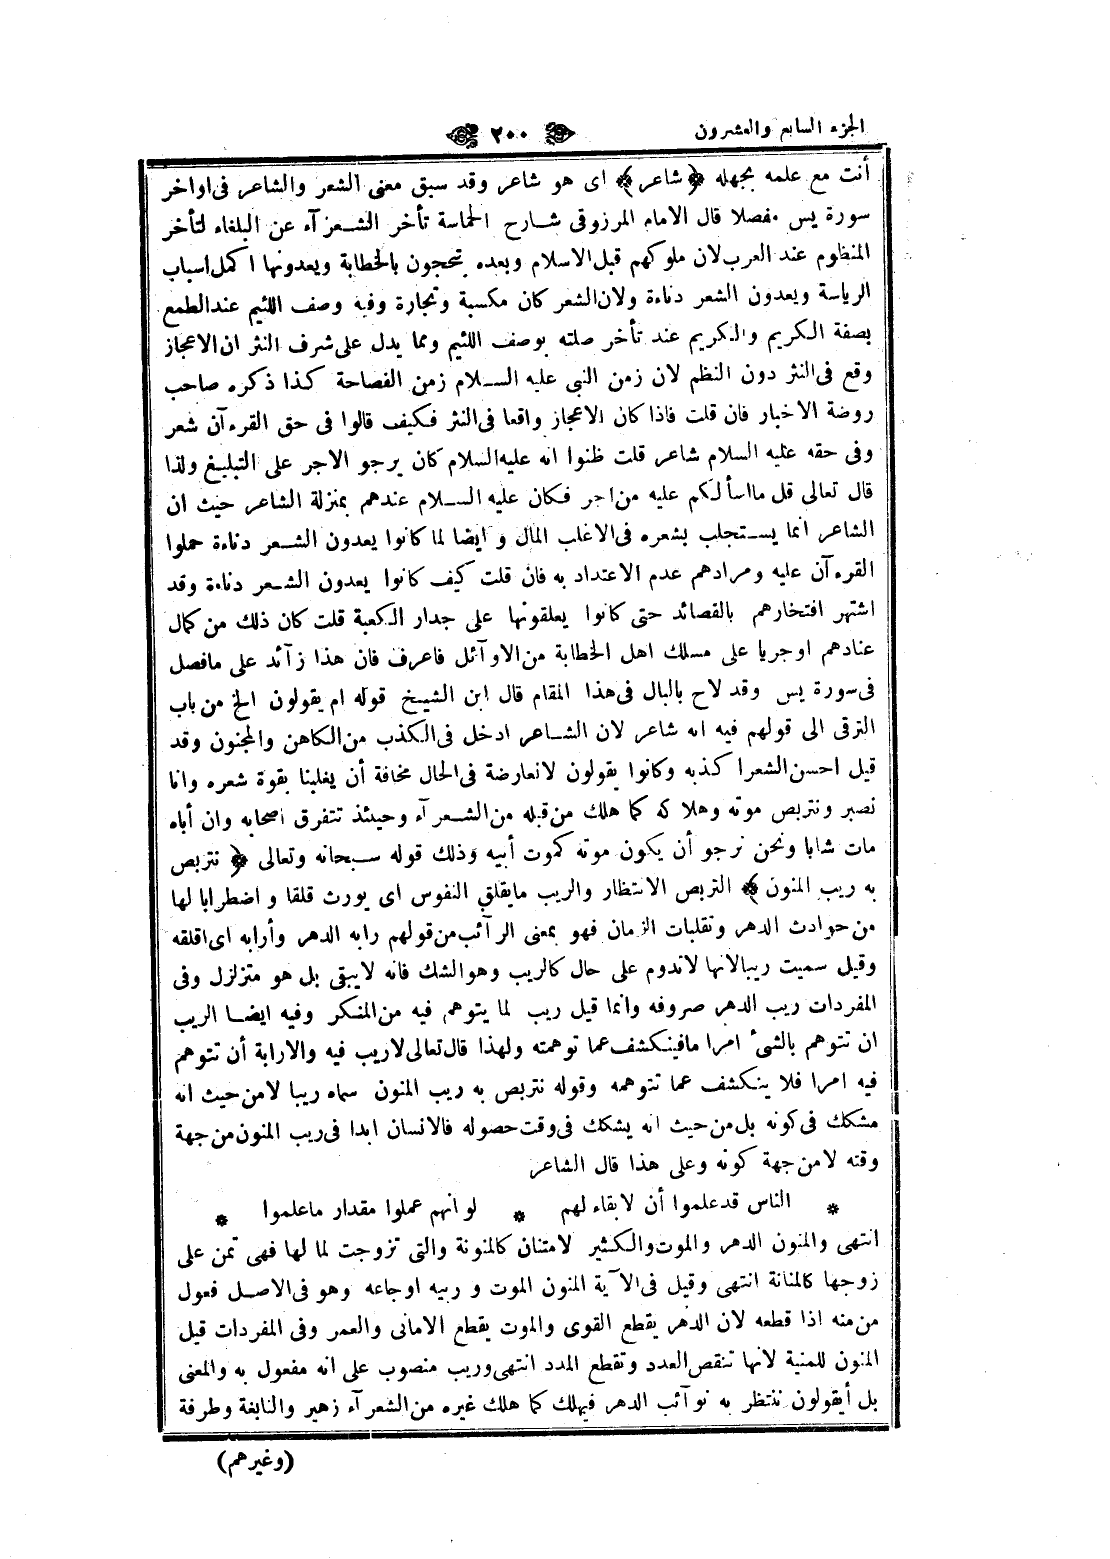 الجزء السابع والعشرون
٢٠٠
أنت مع علمه بجهله ﴿ شاعر ﴾ اى هو شاعر وقد سبق معنى الشعر والشاعر فى اواخر
سورة يس مفصلا قال الامام المرزوقى شارح الحماسة تأخر الشعرآء عن البلغاء لتأخر
المنظوم عند العرب لان ملوكهم قبل الاسلام وبعده يتحجون بالخطابة ويعدونها اكمل اسباب
الرياسة ويعدون الشعر دناءة ولان الشعر كان مكسبة وتجارة وفيه وصف اللئيم عند الطمع
بصفة الكريم والكريم عند تأخر صلته بوصف اللئيم ومما يدل على شرف النثر ان الاعجاز
وقع فى النثر دون النظم لان زمن النبى عليه السلام زمن الفصاحة كذا ذكره صاحب
روضة الاخبار فان قلت فاذا كان الاعجاز واقعا فى النثر فكيف قالوا فى حق القرءآن شعر
وفى حقه عليه السلام شاعر قلت ظنوا انه عليه السلام كان يرجو الاجر على التبليغ ولذا
قال تعالى قل مااسألكم عليه من اجر فكان عليه السلام عندهم بمنزلة الشاعر حيث ان
الشاعر انما يستجلب بشعره فى الاغلب المال و ايضا لما كانوا يعدون الشعر دناءة حملوا
القرءآن عليه ومرادهم عدم الاعتداد به فان قلت كيف كانوا يعدون الشعر دناءة وقد
اشتهر افتخارهم بالقصائد حتى كانوا يعلقونها على جدار الكعبة قلت كان ذلك من كمال
عنادهم اوجريا على مسلك اهل الخطابة من الاوآئل فاعرف فان هذا زآئد على مافصل
فى سورة يس وقد لاح بالبال فى هذا المقام قال ابن الشيخ قوله ام يقولون الخ من باب
الترقى الى قولهم فيه انه شاعر لان الشاعر ادخل فى الكذب من الكاهن والمجنون وقد
قيل احسن الشعر اكذبه وكانوا يقولون لانعارضة فى الحال مخافة أن يغلبنا بقوة شعره وانا
نصبر ونتربص موته وهلاكه كما هلك من قبله من الشعرآء وحينئذ تتفرق اصحابه وان أباه
مات شابا ونحن نرجو أن يكون موته كموت أبيه وذلك قوله سبحانه وتعالى ﴿ نتربص
به ريب المنون ﴾ التربص الانتظار والريب مايقلق النفوس اى يورث قلقا و اضطرابا لها
من حوادث الدهر وتقلبات الزمان فهو بمعنى الرآئب من قولهم رابه الدهر وأرابه اى اقلقه
وقيل سميت ريبا لانها لاتدوم على حال كالريب وهو الشك فانه لايبقى بل هو متزلزل وفى
المفردات ريب الدهر صروفه وانما قيل ريب لما يتوهم فيه من المنكر وفيه ايضا الريب
ان تتوهم بالشئ امرا مافينكشف عما توهمته ولهذا قال تعالى لاريب فيه والارابة أن تتوهم
فيه امرا فلا ينكشف عما تتوهمه وقوله نتربص به ريب المنون سماه ريبا لامن حيث انه
مشكك فى كونه بل من حيث انه يشكك فى وقت حصوله فالانسان ابدا فى ريب المنون من جهة
وقته لامن جهة كونه وعلى هذا قال الشاعر
* الناس قد علموا أن لابقاء لهم * لو انهم عملوا مقدار ماعلموا *
انتهى والمنون الدهر والموت والكثير لامتنان كالمنونة والتى تزوجت لما لها فهى تمن على
زوجها كالمنانة انتهى وقيل فى الآية المنون الموت و ريبه اوجاعه وهو فى الاصل فعول
من منه اذا قطعه لان الدهر يقطع القوى والموت يقطع الامانى والعمر وفى المفردات قيل
المنون للمنية لانها تنقص العدد وتقطع المدد انتهى وريب منصوب على انه مفعول به والمعنى
بل أيقولون ننتظر به نوآئب الدهر فيهلك كما هلك غيره من الشعرآء زهير والنابغة وطرفة
(وغيرهم)